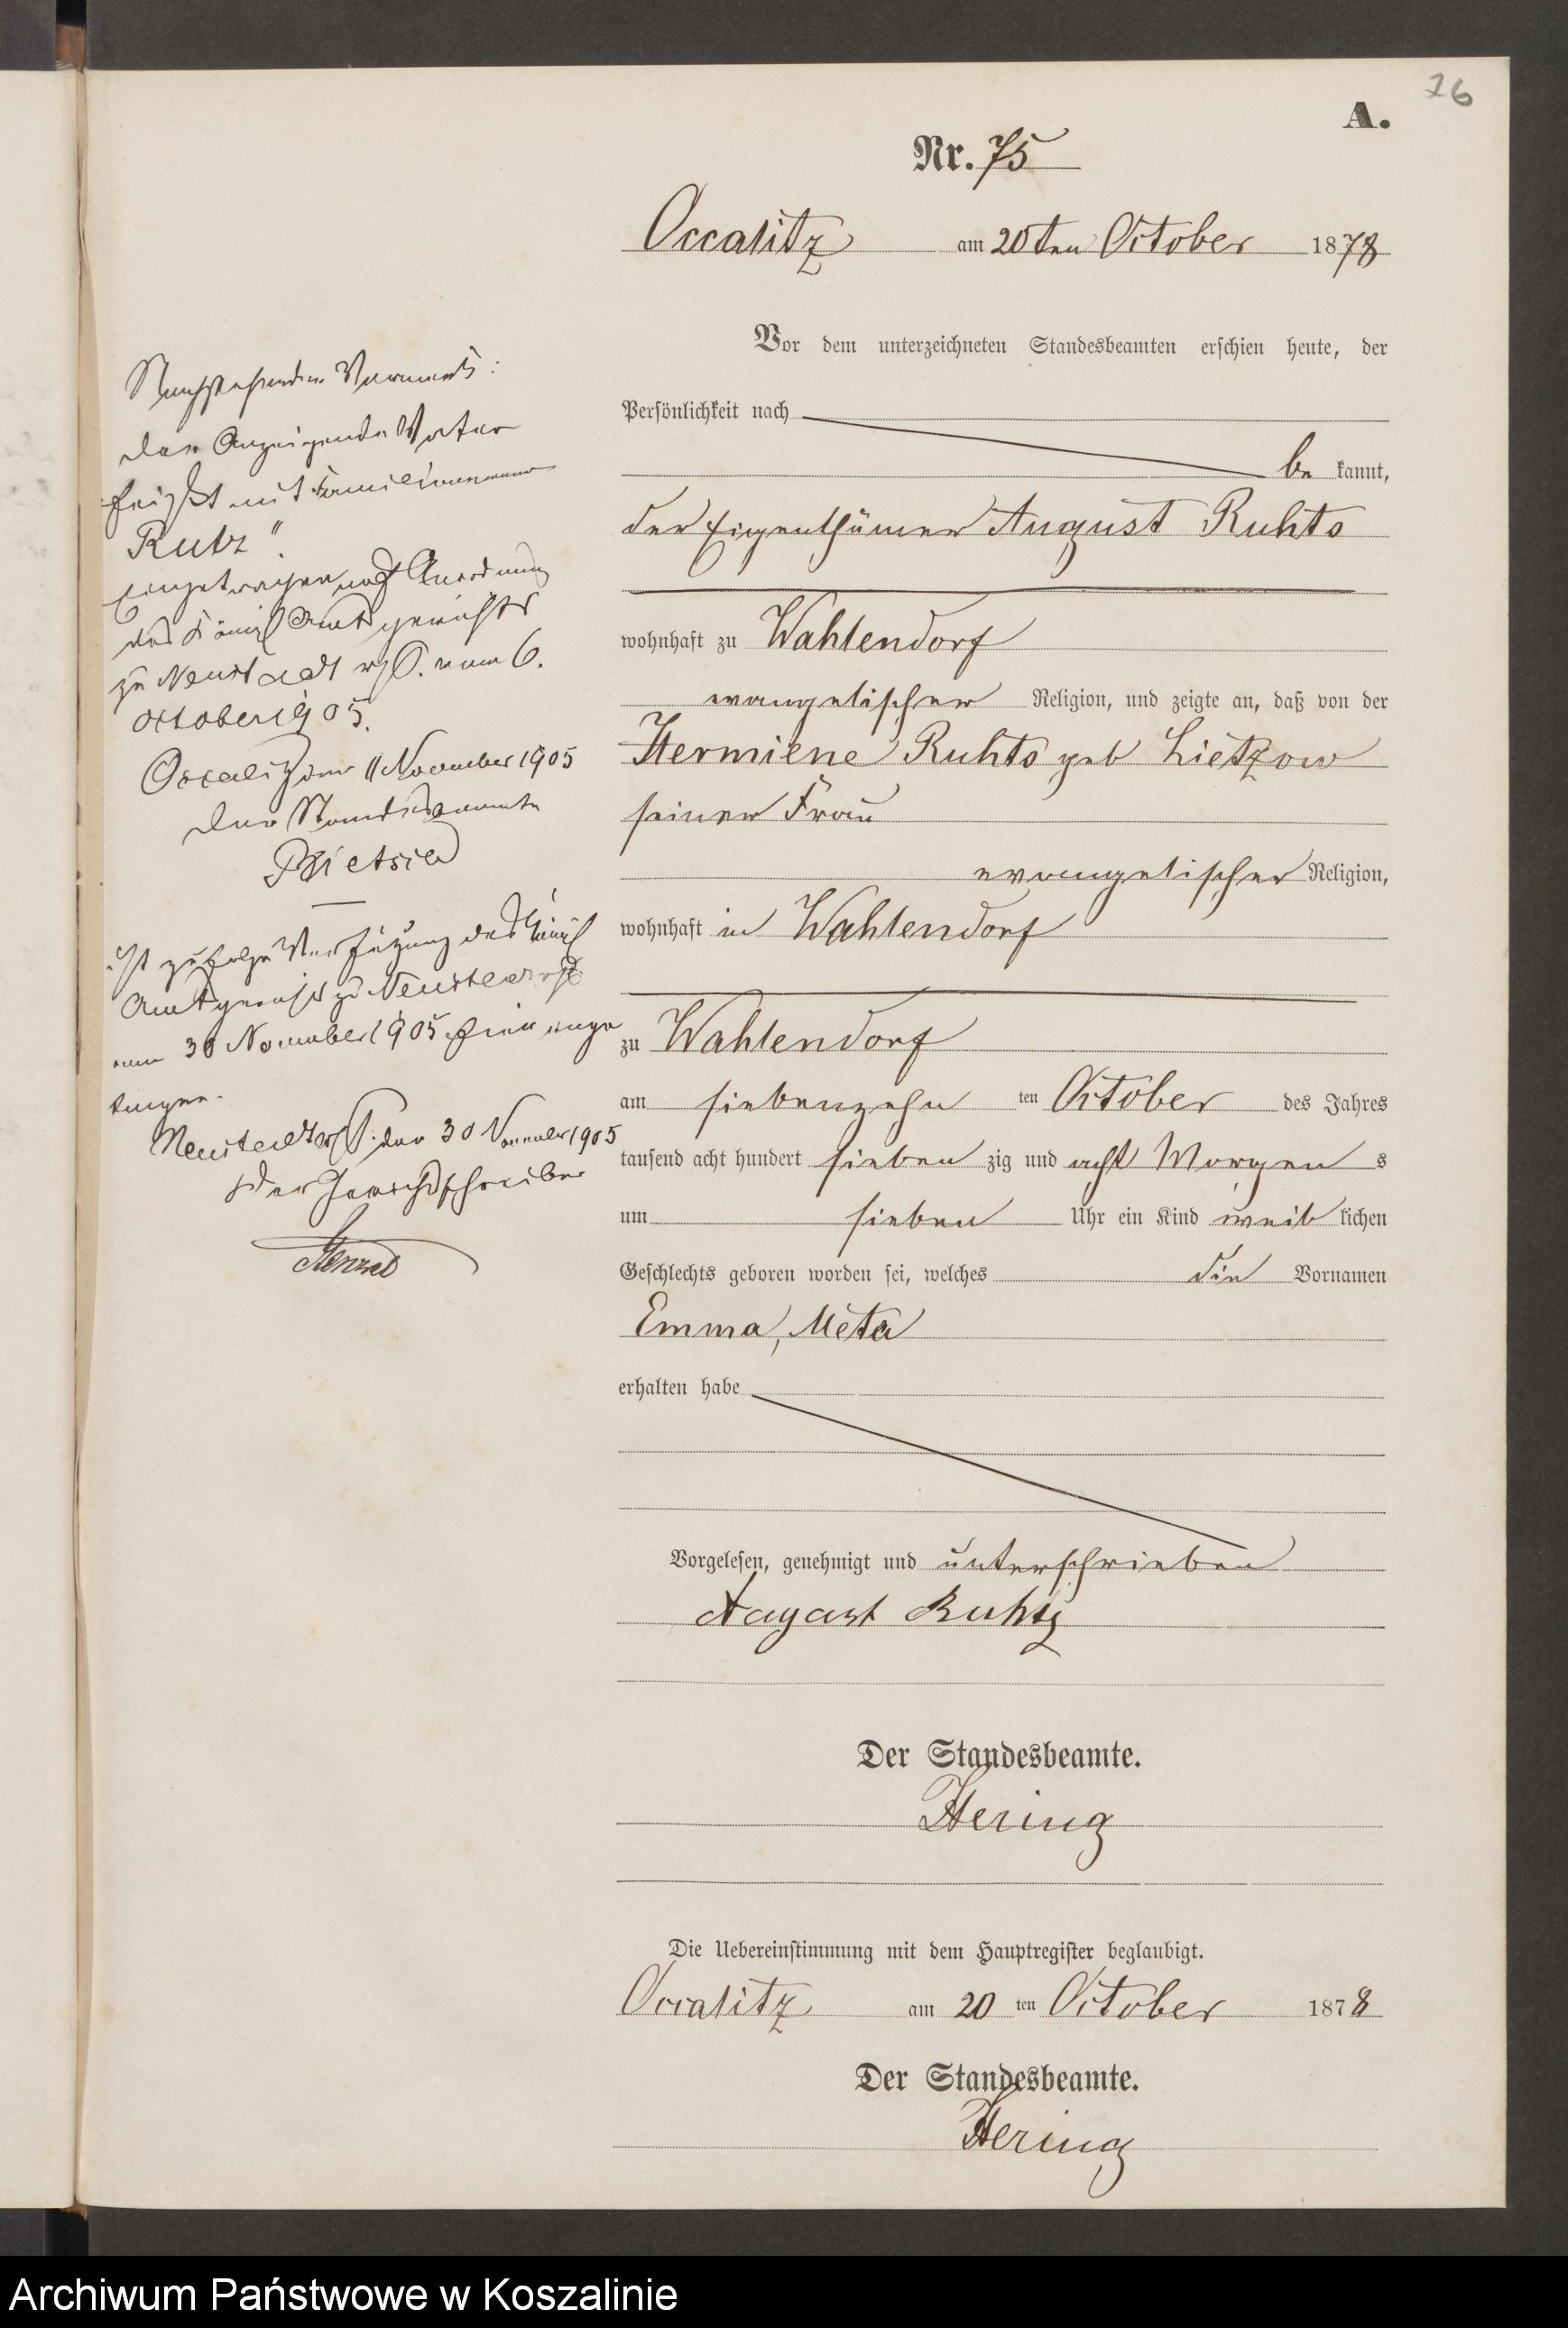 76
A.
Nr. 75
Occalitz am 20ten October 1878
Vor dem unterzeichneten Standesbeamten erschien heute, der
Persönlichkeit nach
be kannt,
der Eigenthümer August Ruhts
wohnhaft zu Wahlendorf
evangelischer Religion, und zeigte an, daß von der
Hermiene Ruhts geb Lietzow
seiner Frau
evangelischer Religion,
wohnhaft in Wahlendorf
zu Wahlendorf
am siebenzehn ten October des Jahres
tausend acht hundert sieben zig und acht Morgen s
um sieben Uhr ein Kind weib lichen
Geschlechts geboren worden sei, welches die Vornamen
Emma, Meta
erhalten habe
Vorgelesen, genehmigt und unterschrieben
August Ruhtz
Der Standesbeamte.
Hering
Die Uebereinstimmung mit dem Hauptregister beglaubigt.
Occalitz am 20 ten October 1878
Der Standesbeamte.
Hering
Nachstehender Vermerk:
Der Anzeigende Vater
heißt mit Familiennamen
Rutz".
Eingetragen auf Anordnung
des Königl Amtsgerichts
zu Neustadt w/P. vom 6.
October 1905.
Occalitz den 11 November 1905
Der Standesbeamte
ist zufolge Verfügung des Königl
Amtsgerichts zu Neustadt w/P
vom 30 November 1905 hier einge
tragen.
Neustadt w/P. den 30 November 1905
Der Gerichtsschreiber
Archiwum Państwowe w Koszalinie